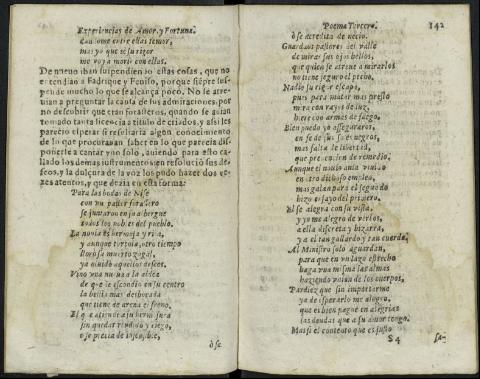 Experiencias de Amor, y Fortuna.
con
mas yo que
me voy a morir con ellas.
De nueuo iban suspendiendo estas cosas, que no
entendian a Fadrique y Feniso, porque siẽpre sus-
pende mucho lo que se alcança poco. No se atre-
uian a preguntar la causa de sus admiraciones, por
no descubrir que eran forasteros, quando se auian
tomado tanta licencia a titulo de criados, y assi les
parecio esperar si resultaria algun conocimiento
de lo que procurauan saber en lo que parecia dis-
ponerse a cantar vno solo, auiendo para ello ca-
llado los demas instrumentos en resolucion sus de-
seos, y la dulçura de la voz los pudo hazer dos ve-
zes atentos, y que dezia en esta forma:
Para las bodas de Nise
con vn pastor forastero
se juntaron en su albergue
todos los nobles del pueblo.
La nouia es hermosa y rica,
y aunque tortola, otro tiempo
lloró su muerto zagal,
ya oluidó aquellos deseos.
Vino vna nouia a la aldea
de que le escondio en su centro
la bella mas desdorada
que tiene de arena el freno.
El que atiende a su hermosura
sin quedar rendido y ciego,
o se precia de
ò se
Poema Tercero. 142
ò se acredita de necio.
Guardaos pastores del valle
de mirar sus ojos bellos,
que quien se atreue a mirarlos
no tiene seguro el pecho.
Nadie su rigor escapa,
pues para matar mas presto
mira con rayos de luz,
hiere con armas de fuego.
Bien puedo yo asseguraros,
en fe de sus ojos negros,
mas falta de libertad,
que preuencion de remedio.
Aunque el nouio auia viuido
en otro dichoso empleo,
mas galan para el segundo
hizo ensayo del primero.
El se alegra con su vista,
y yo me alegro de verlos,
a ella discreta y bizarra,
y a el tan gallardo y tan cuerdo.
Al Ministro solo aguardan,
para que en vn lazo estrecho
haga vna misma las almas
haziendo vnion de los cuerpos,
Pardiez que sin importarme
ya de esperarlo me alegro,
que es bien pague en alegrias
las deudas que a su amor tengo.
Massi el contento que es justo
S 4 se-